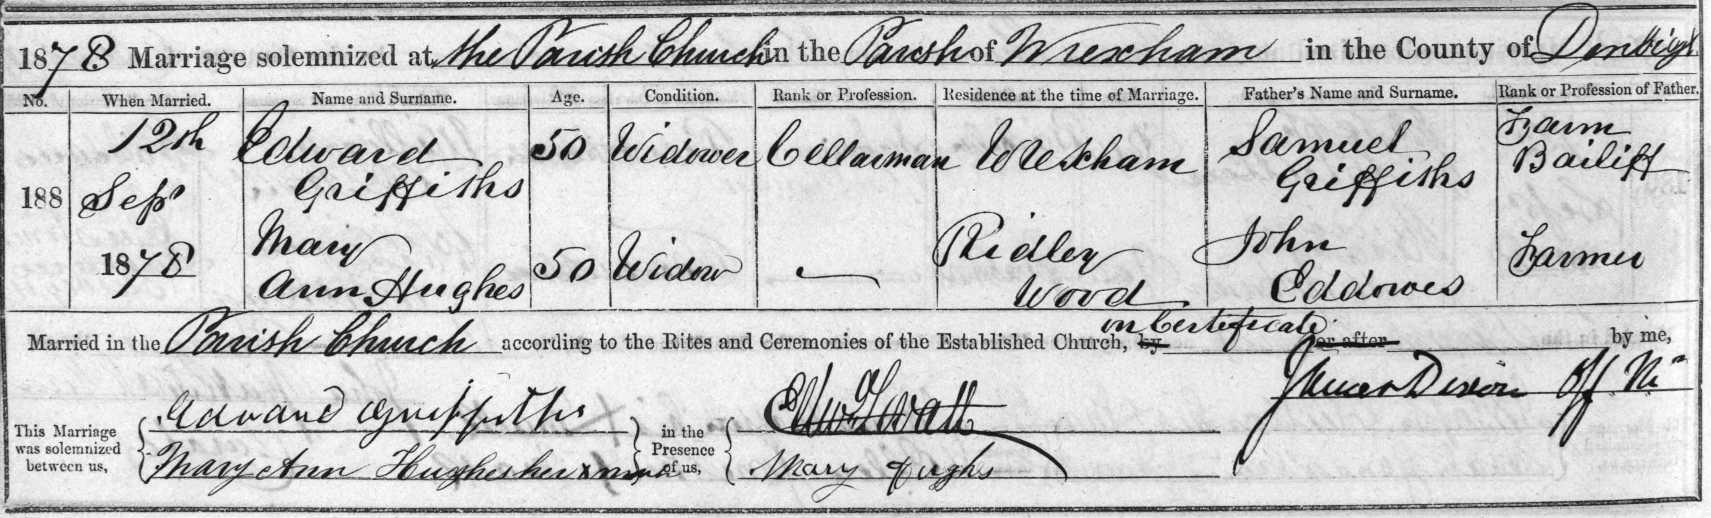 1878 Marriage solemnized at the Parish Church in the Parish of Wrexham in the County of Denbigh
No. When Married. Name and Surname. Age. Condition. Rank or Profession. Residence at the time of Marriage. Father's Name and Surname. Rank or Profession of Father.
188 12th Sepr 1878
Edward Griffiths 50 Widower Cellarman Wrexham Samuel Griffiths Farm Bailiff
Mary Ann Hughes 50 Widow — Ridley Wood John Eddowes Farmer
Married in the Parish Church according to the Rites and Ceremonies of the Established Church, by on Certificate or after by me,
James Dixon Off Mr
This Marriage was solemnized between us, Edward Griffiths
Mary Ann Hughes her x mark
in the Presence of us, Lovatt
Mary Hughs